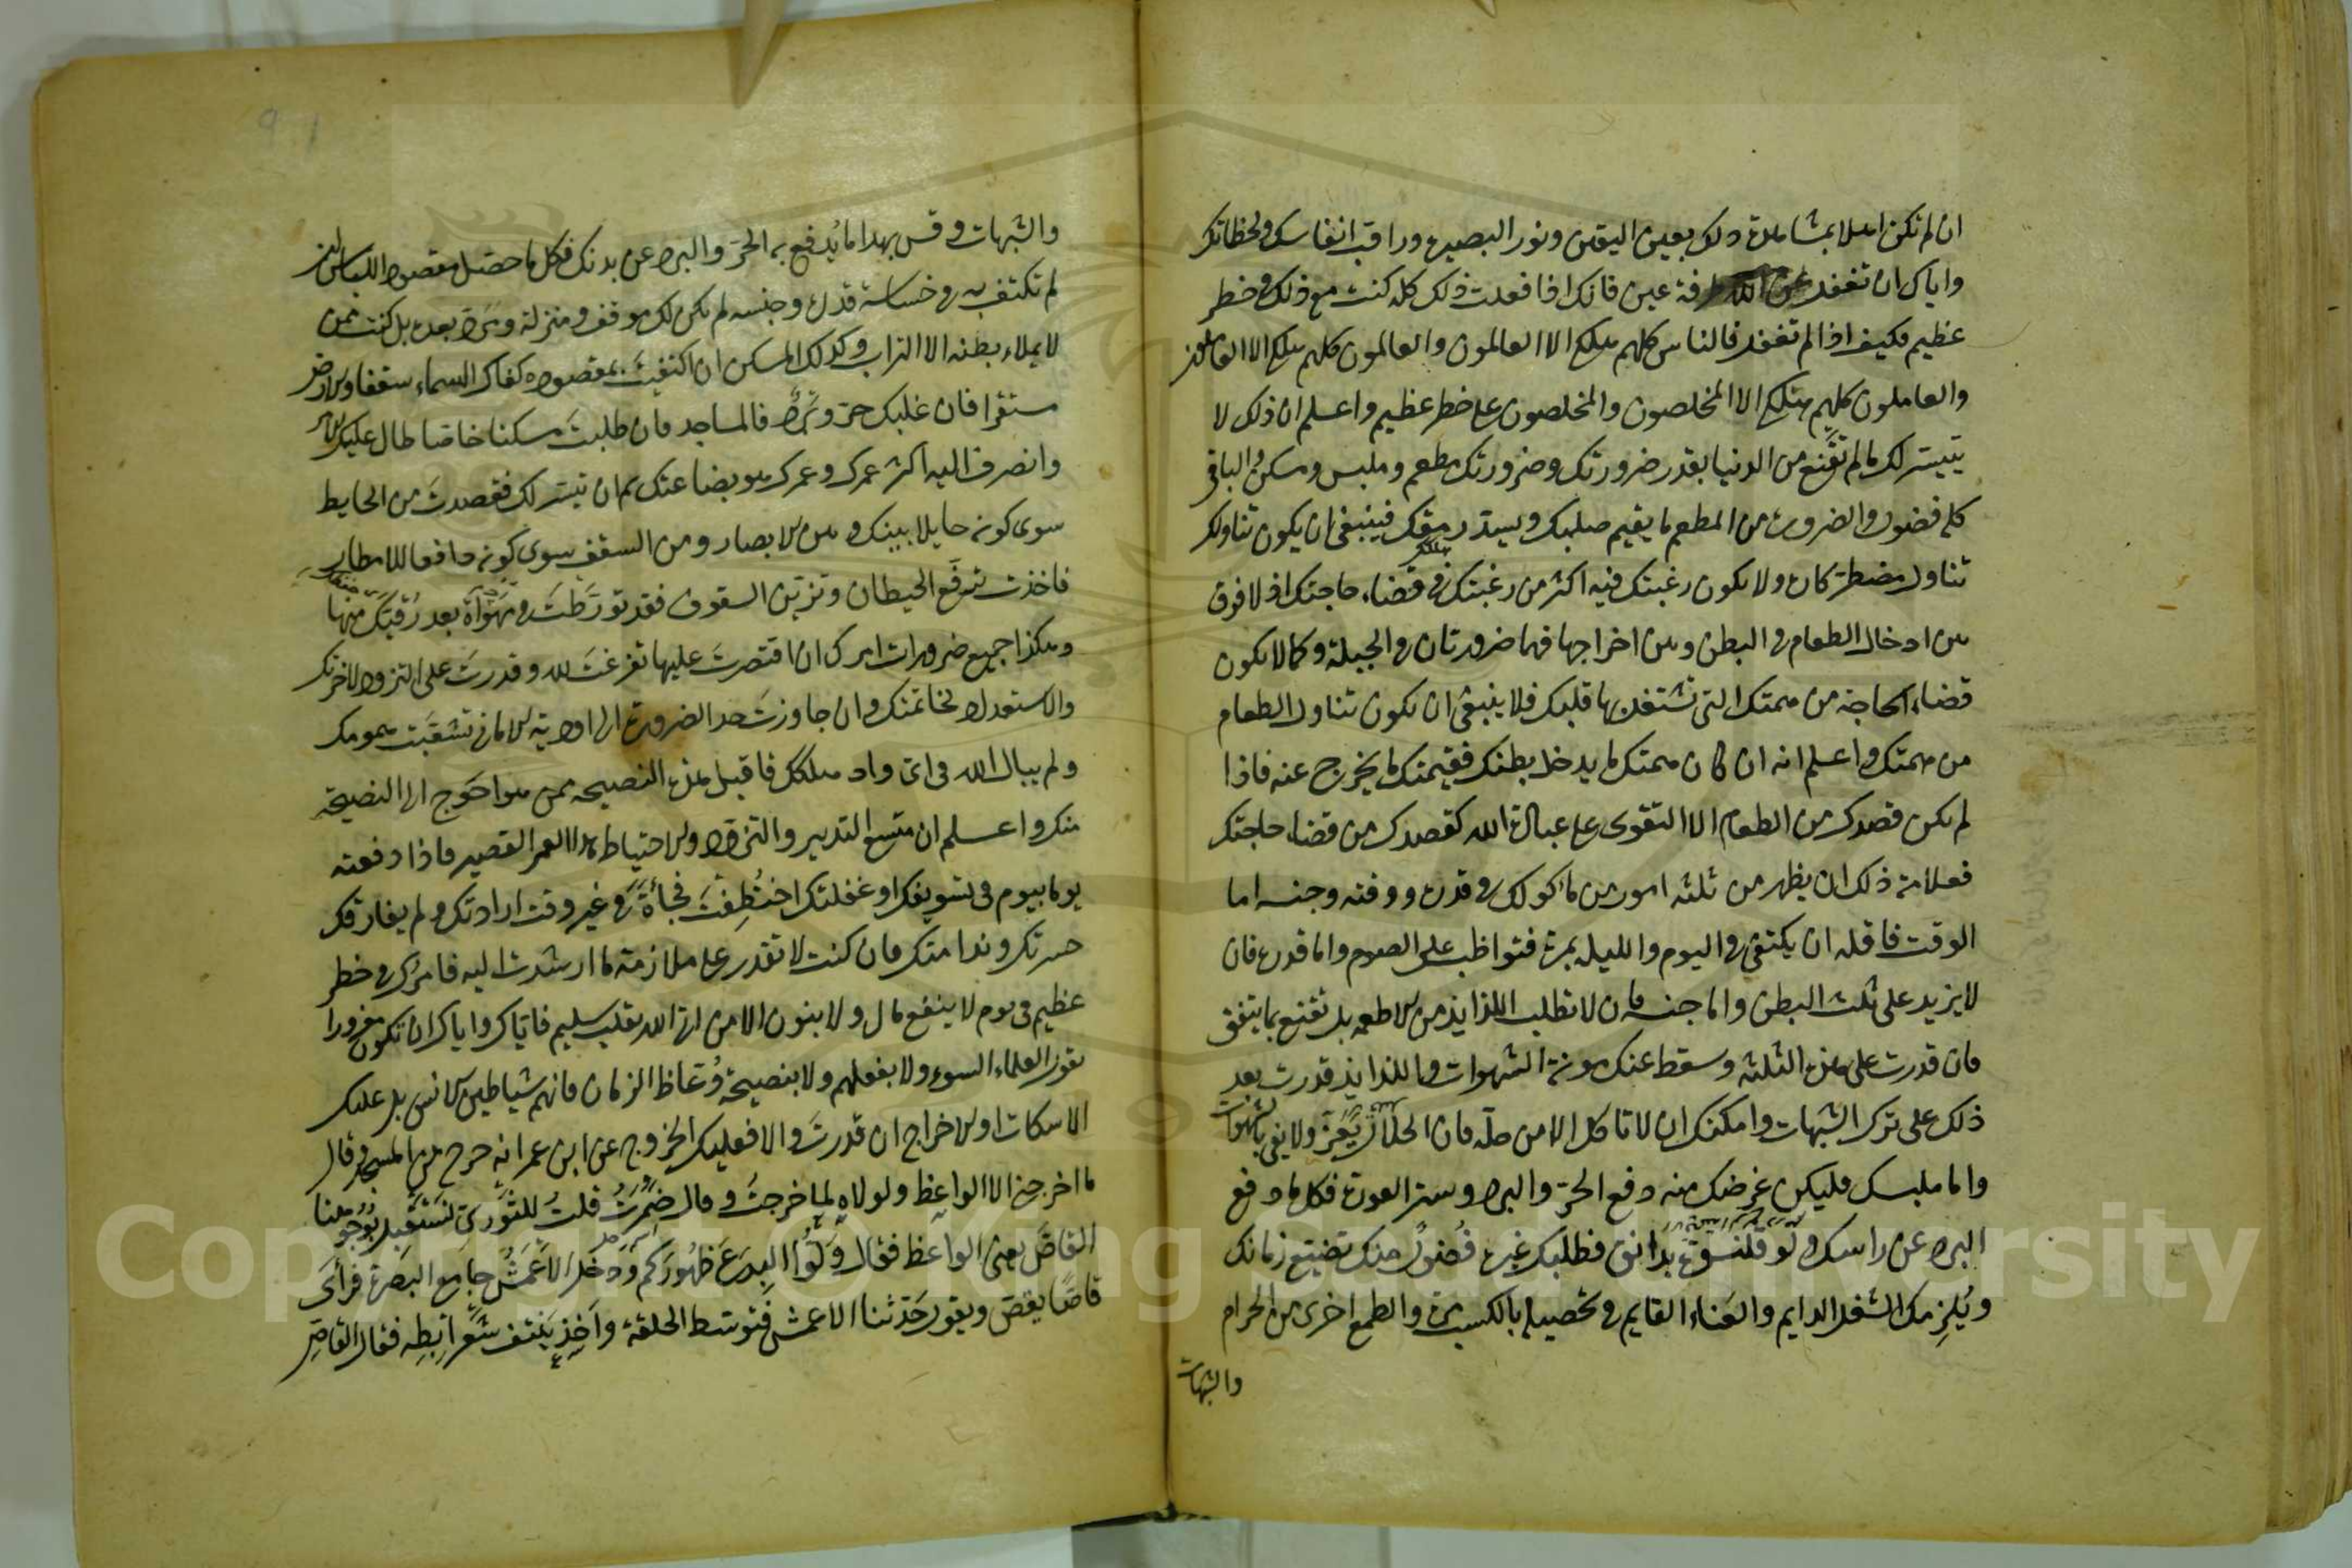 ان لم تكن اهلا بمشاهدة ذلك بعين اليقين ونور البصيرة وراقب انفاسك ولحظاتك
واياك ان تغفل عن الله طرفة عين فانك اذا فعلت ذلك كله كنت مع ذلك في خطر
عظيم فكيف اذا لم تفعل فالناس كلهم هلكى الا العالمون والعالمون كلهم هلكى الا العاملون
والعاملون كلهم هلكى الا المخلصون والمخلصون على خطر عظيم واعلم ان ذلك لا
يتيسر لك ما لم تقنع من الدنيا بقدر ضرورتك وضرورتك مطعم وملبس ومسكن والباقي
كله فضول والضرورة من المطعم ما يقيم صلبك ويسد رمقك فينبغي ان يكون تناولك
تناول مضطر كاره ولا يكون رغبتك فيه اكثر من رغبتك في قضاء حاجتك اذ لا فرق
بين ادخال الطعام في البطن وبين اخراجها فهما ضرورتان في الجبلة وكما لا يكون
قضاء الحاجة من همتك التي تشتغل بها قلبك فلا ينبغي ان يكون تناول الطعام
من همتك واعلم انه ان كان همتك ما يدخل بطنك فقيمتك ما يخرج عنه فاذا
لم يكن قصدك من الطعام الا التقوى على عبادة الله كقصدك من قضاء حاجتك
فعلامة ذلك ان يظهر من ثلثه امور من مأكولك في قدره ووقته وجنسه اما
الوقت فاقله ان يكتفى في اليوم والليلة بمرة فتواظب على الصوم واما قدره فان
لا يزيد على ثلث البطن واما جنسه فان لا تطلب اللذايذ من الاطعمه بل تقنع بما يتفق
فان قدرت على هذه الثلثه وسقط عنك مونة الشهوات واللذايذ قدرت بعد
ذلك على ترك الشبهات وامكنك ان لا تاكل الا من حله فان الحلال يعز ولا يفي بالشهوات
واما ملبسك فليكن غرضك منه دفع الحر والبرد وستر العورة فكل ما دفع
البرد عن راسك ولو قلنسوة بدانق فطلبك غيره فضول منك تضييع زمانك
ويلزمك الشغل الدايم والعناء القايم في تحصيله بالكسب مرة والطمع اخرى من الحرام
والشبهات
والشبهات وقس بهذا ما يدفع به الحر والبرد عن بدنك فكل ما حصل مقصود اللباس ان
لم تكتف به في خساسة قدره وجنسه لم يكن لك موقف ومنزلة ومرد بعده بل كنت ممن
لا يملاء بطنه الا التراب وكذلك المسكن ان اكتفيت بمقصوده كفاك السماء سقفا والارض
مستقرا فان غلبك حر وبرد فالمساجد فان طلبت مسكنا خاصا طال عليك الامر
وانصرف اليه اكثر عمرك وعمرك هو بضاعتك ثم ان تيسر لك فقصدت من الحايط
سوى كونه حايلا بينك وبين الابصار ومن السقف سوى كونه دافعا للامطار
فاخذت ترفع الحيطان وتزين السقوف فقد تورطت في مهواة بعد رقيك منها
وهكذا جميع ضرورات امرك ان اقتصرت عليها تفرغت لله وقدرت على التزود لاخرتك
والاستعداد لخاتمتك وان جاوزت حد الضرورة الى اودية الاماني تشعبت همومك
ولم يبال الله في اي واد هلكك فاقبل هذه النصيحه ممن هو احوج الى النصيحة
منك واعلم ان متسع التدبير والتزود والاحتياط هذا العمر القصير فاذا دفعته
يوما بيوم في تسويفك او غفلتك اختطفت فجأة في غير وقت ارادتك ولم يفارقك
حسرتك وندامتك فان كنت لا تقدر على ملازمة ما ارشدت اليه فامرك في خطر
عظيم في يوم لا ينفع مال ولا بنون الا من اتى الله بقلب سليم فاياك واياك ان تكون مغرورا
بقول العلماء السوء ولا بفعلهم ولا بنصيحة وعاظ الزمان فانهم شياطين الانس بل عليك
الاسكات او الاخراج ان قدرت والا فعليك الخروج عن ابن عمر انه خرج من المسجد وقال
ما اخرجني الا الواعظ ولولاه لما خرجت وقال ضمرت قلت للثوري نستقبل بوجوهنا
القاص يعني الواعظ فقال ولوا البدع ظهوركم ودخل الاعمش جامع البصرة فرأى
قاصا يقص ويقول حدثنا الاعمش فتوسط الحلقة واخذ ينتف شعر ابطه فقال القاص